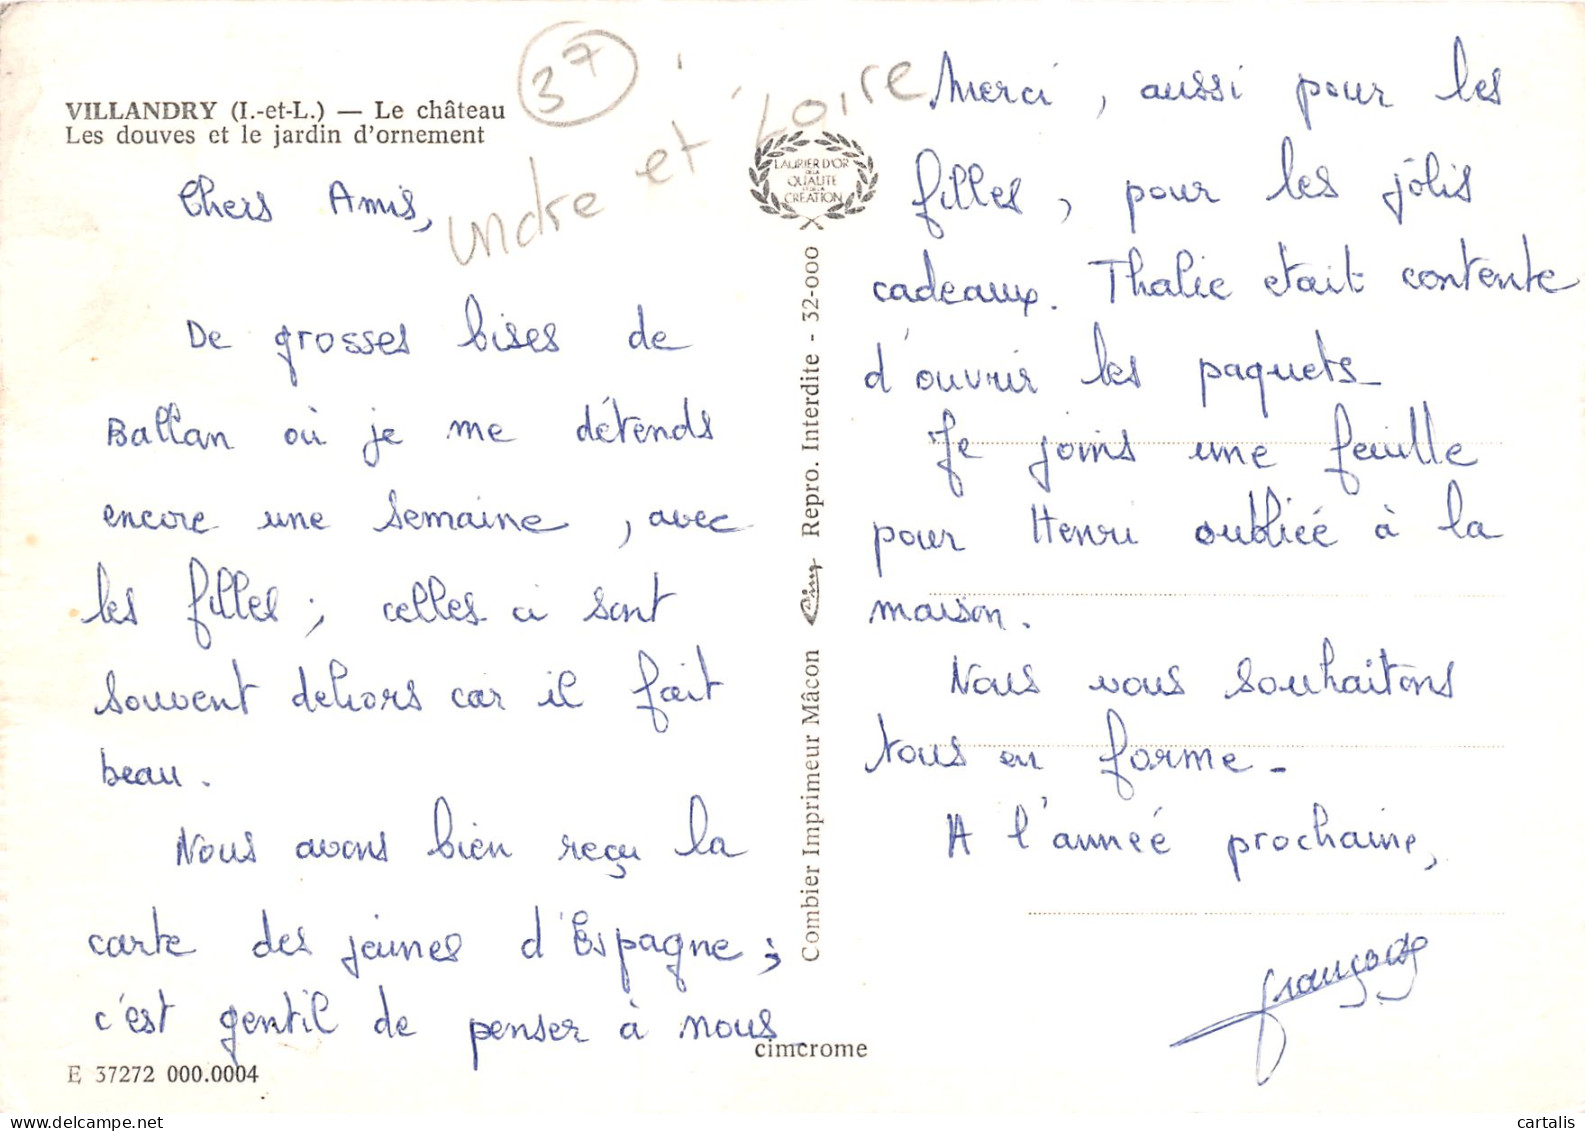 VILLANDRY (I.-et-L.) — Le château
Les douves et le jardin d'ornement
37
indre et Loire
Chers Amis,
De grosses bises de
Ballan où je me détends
encore une semaine, avec
les filles ; celles ci sont
souvent dehors car il fait
beau.
Nous avons bien reçu la
carte des jeunes d'Espagne ;
c'est gentil de penser à nous_
E 37272 000.0004
LAURIER D'OR
DE LA
QUALITÉ
ET DE LA
CRÉATION
Combier Imprimeur Mâcon Cim Repro. Interdite - 32-000
cimcrome
Merci, aussi pour les
filles, pour les jolis
cadeaux. Thalie etait contente
d'ouvrir les paquets_
Je joins une feuille
pour Henri oubliée à la
maison.
Nous vous souhaitons
tous en forme_
A l'année prochaine,
Françoise
cartalis